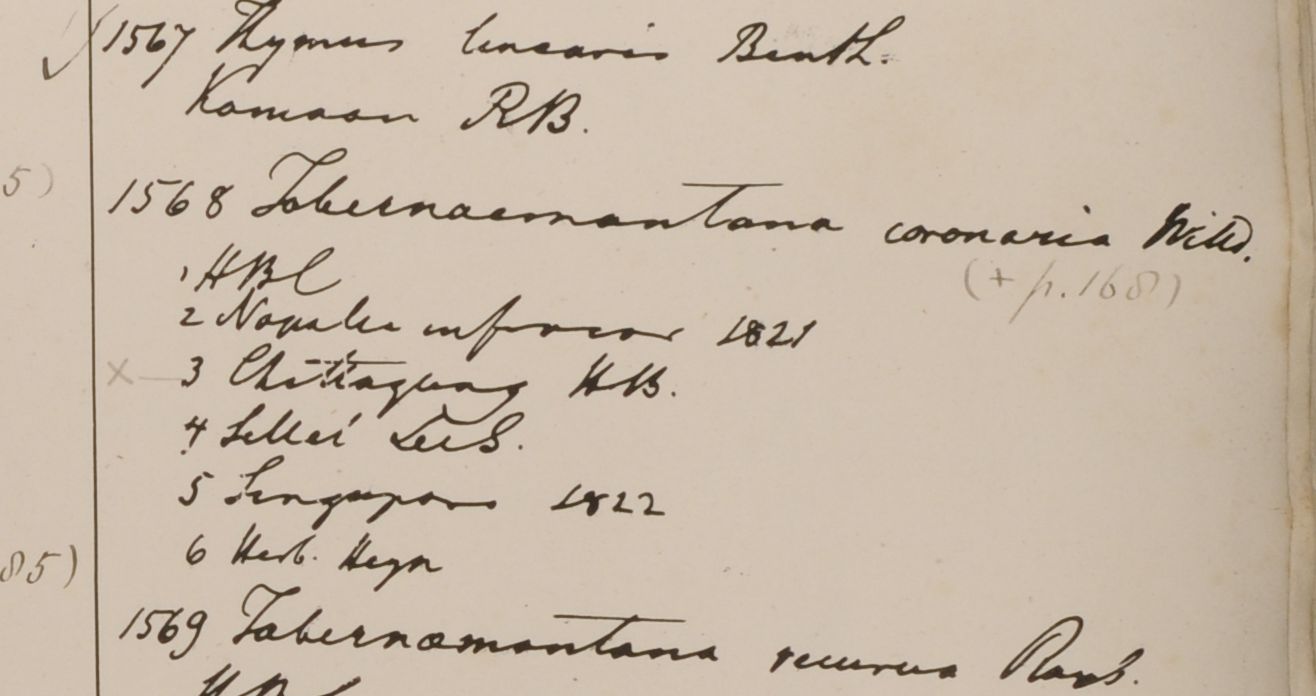 1567 Thymus linearis Benth.
Kamaon RB.
5)
1568 Tabernaemontana coronaria Willd.
(+ p.168)
1 HBC
2 Napalia inferior 1821
x 3 Chittagong HB.
4 Sillet
5 Singapore 1822
6 Herb. Heyn
85)
1569 Tabernæmontana recurva Roxb.
HBC